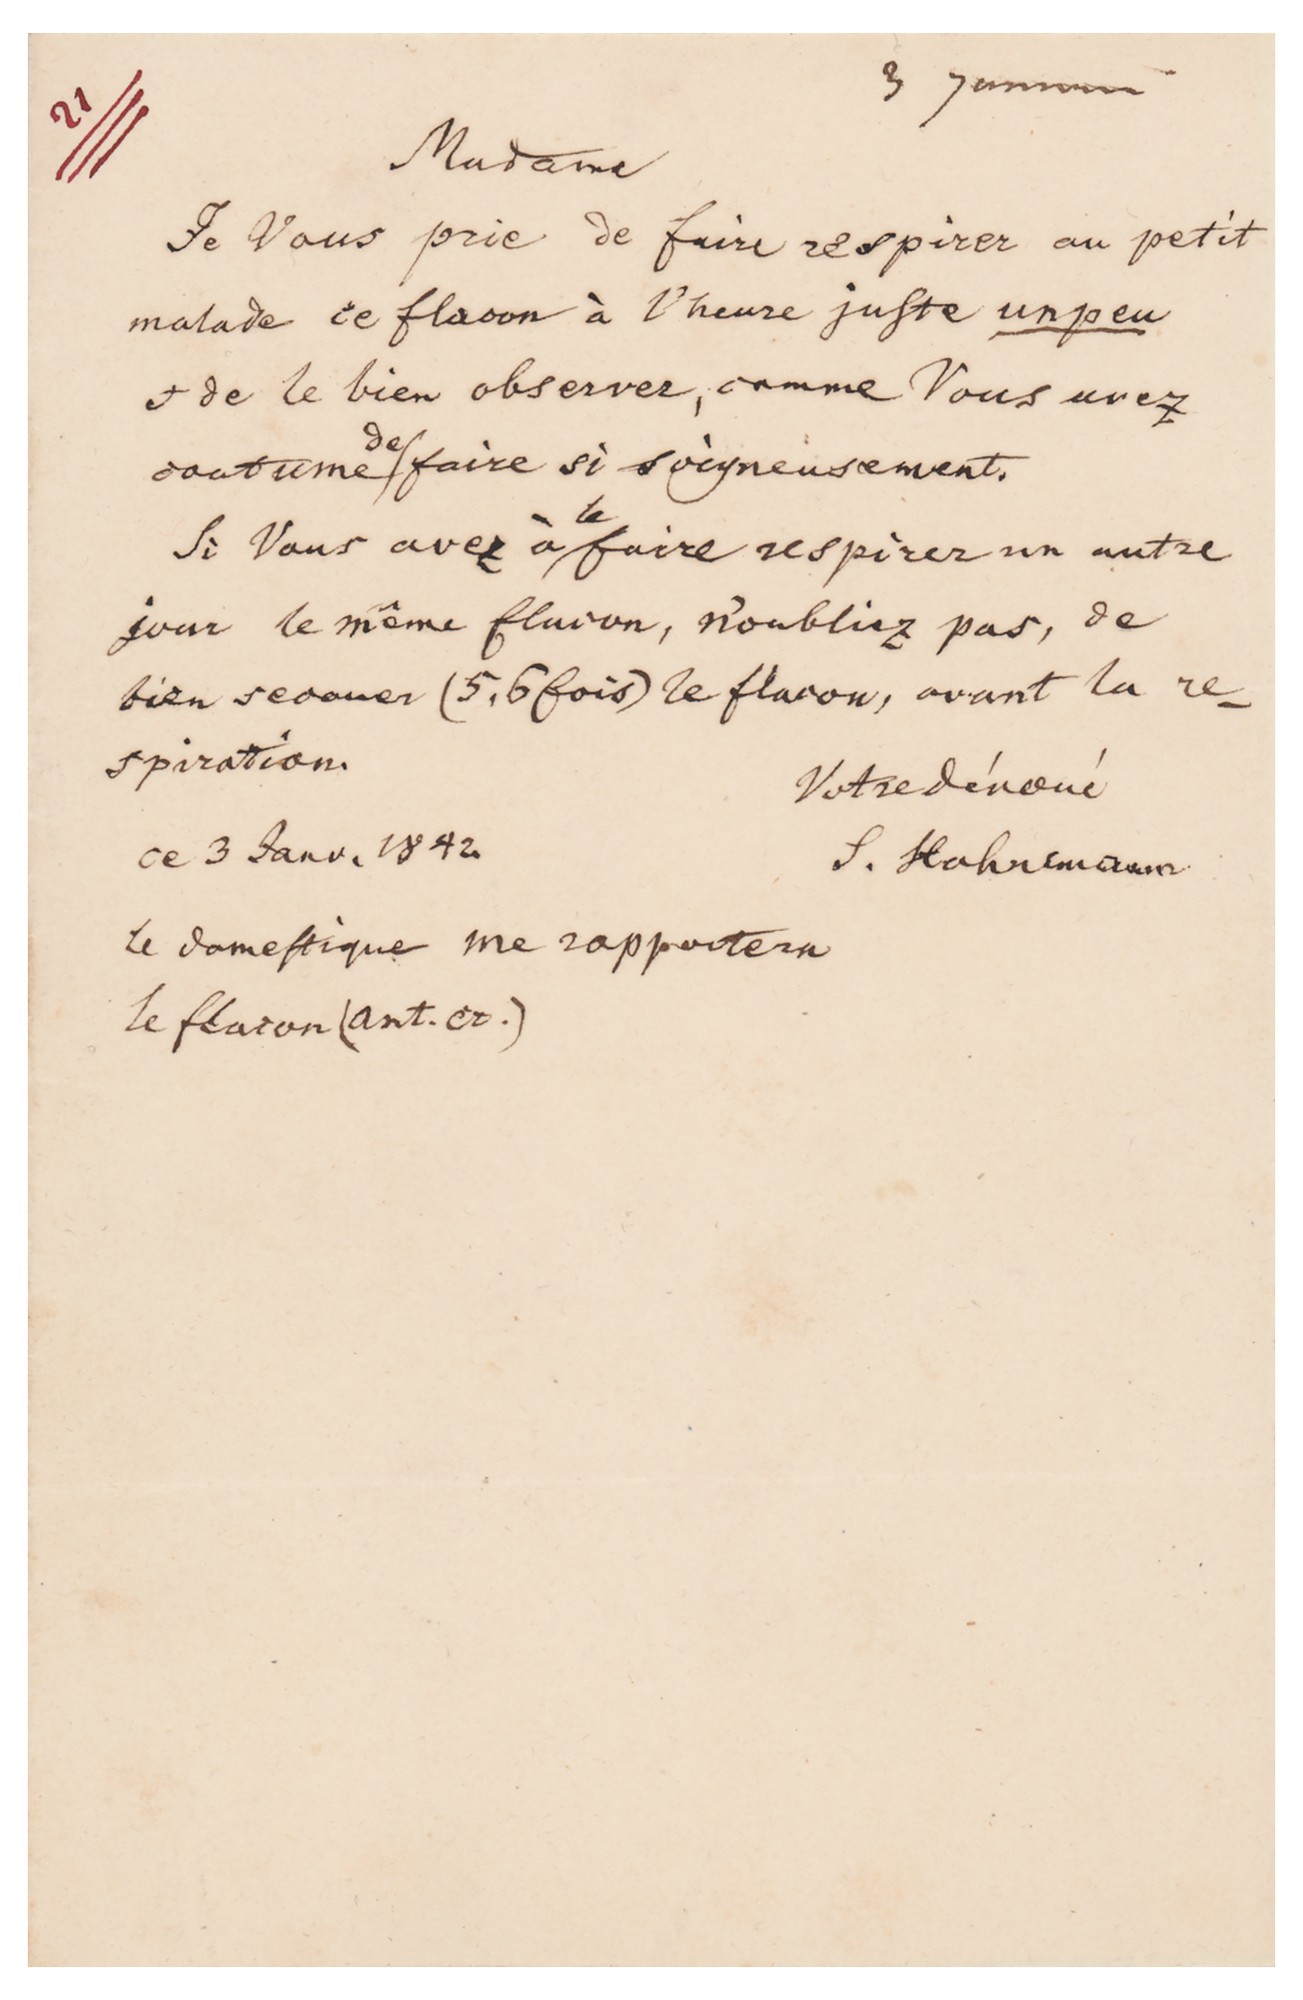 21
3 Janvier
Madame
Je Vous prie de faire respirer au petit
malade ce flacon à l'heure juste un peu
+ de le bien observer, comme Vous avez
coutume de faire si soigneusement.
Si Vous avez à le faire respirer un autre
jour le même flacon, n'oubliez pas, de
bien secouer (5,6 fois) le flacon, avant la re-
spiration.
Votre dévoué
ce 3 Janv. 1842
S. Hahnemann
le domestique me rapportera
le flacon (ant. cr.)